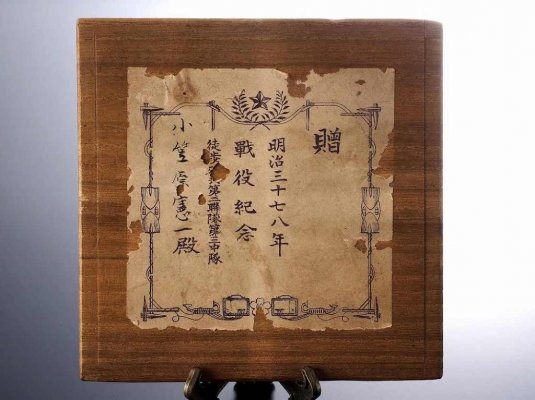 贈
明治三十七八年
戰役紀念
徒歩 第二聯隊第三中隊
小笠原憲一殿